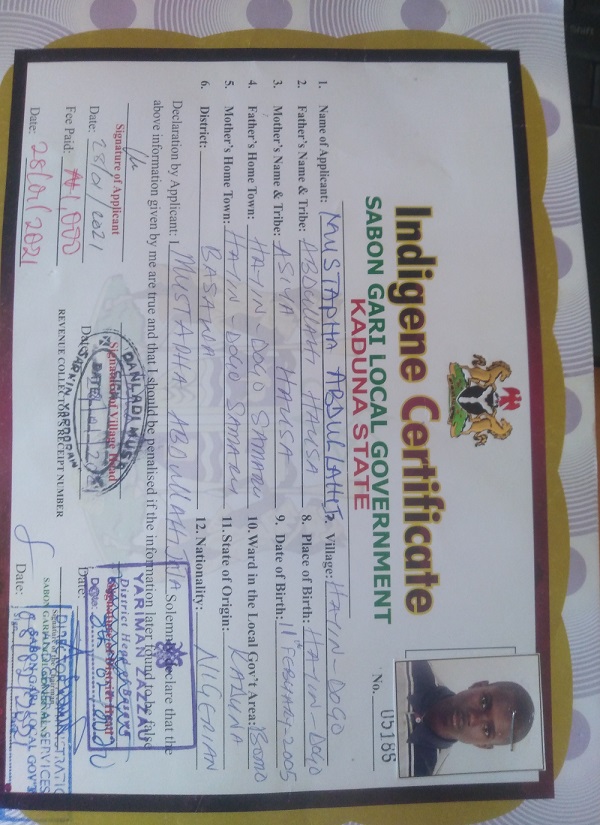 Indigene Certificate
SABON GARI LOCAL GOVERNMENT
KADUNA STATE
No. 05186
1. Name of Applicant: MUSTAPHA ABDULLAHI
2. Father's Name & Tribe: ABDULLAHI HAUSA
3. Mother's Name & Tribe: ASIYA HAUSA
4. Father's Home Town: HAYIN-DOGO SAMARU
5. Mother's Home Town: HAYIN-DOGO SAMARU
6. District: BASAWA
7. Village: HAYIN-DOGO
8. Place of Birth: HAYIN-DOGO
9. Date of Birth: 11th FEBUARY-2005
10. Ward in the Local Gov't Area:
11. State of Origin: KADUNA
12. Nationality: NIGERIAN
Declaration by Applicant: I MUSTAPHA ABDULLAHI Solemnly declare that the
above information given by me are true and that I should be penalised if the information later found to be false
Signature of Applicant
Date: 28/01/2021
Signature of Village Head
Date:
DANLADI MUSA
DATE
YARIMAN ZAZZAU
District Head of Basawa
Date:
Fee Paid: ₦1,000
REVENUE COLLECTOR'S RECEIPT NUMBER
Date: 28/01/2021
Date:
SABON GARI LOCAL GOV'T